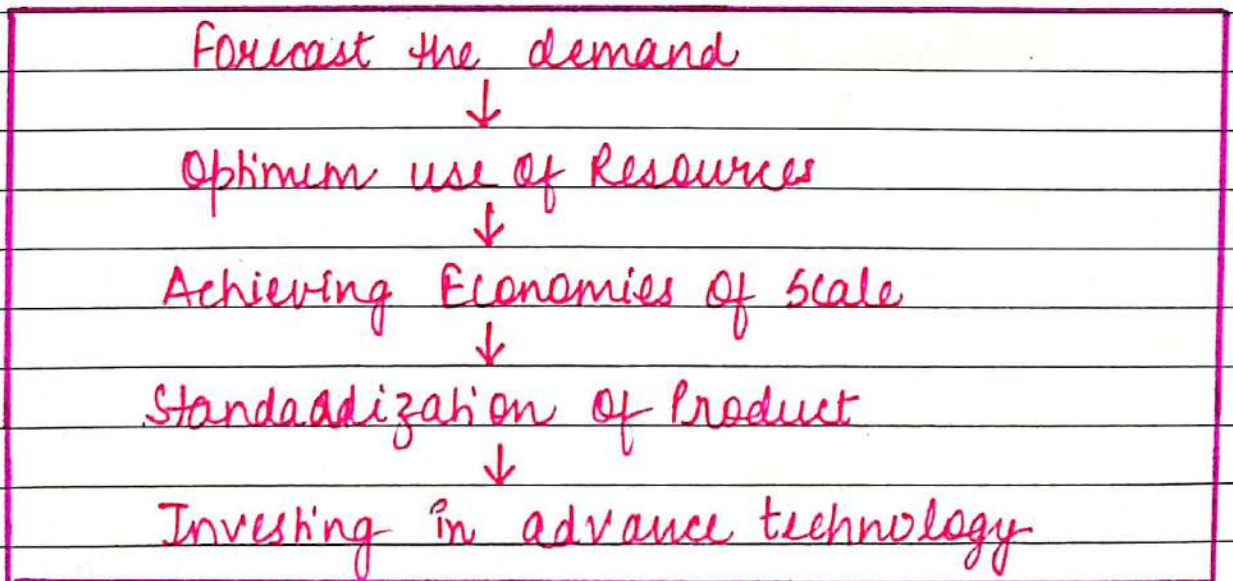 Forecast the demand
↓
Optimum use of Resources
↓
Achieving Economies of Scale
↓
Standaddization of Product
↓
Investing in advance technology